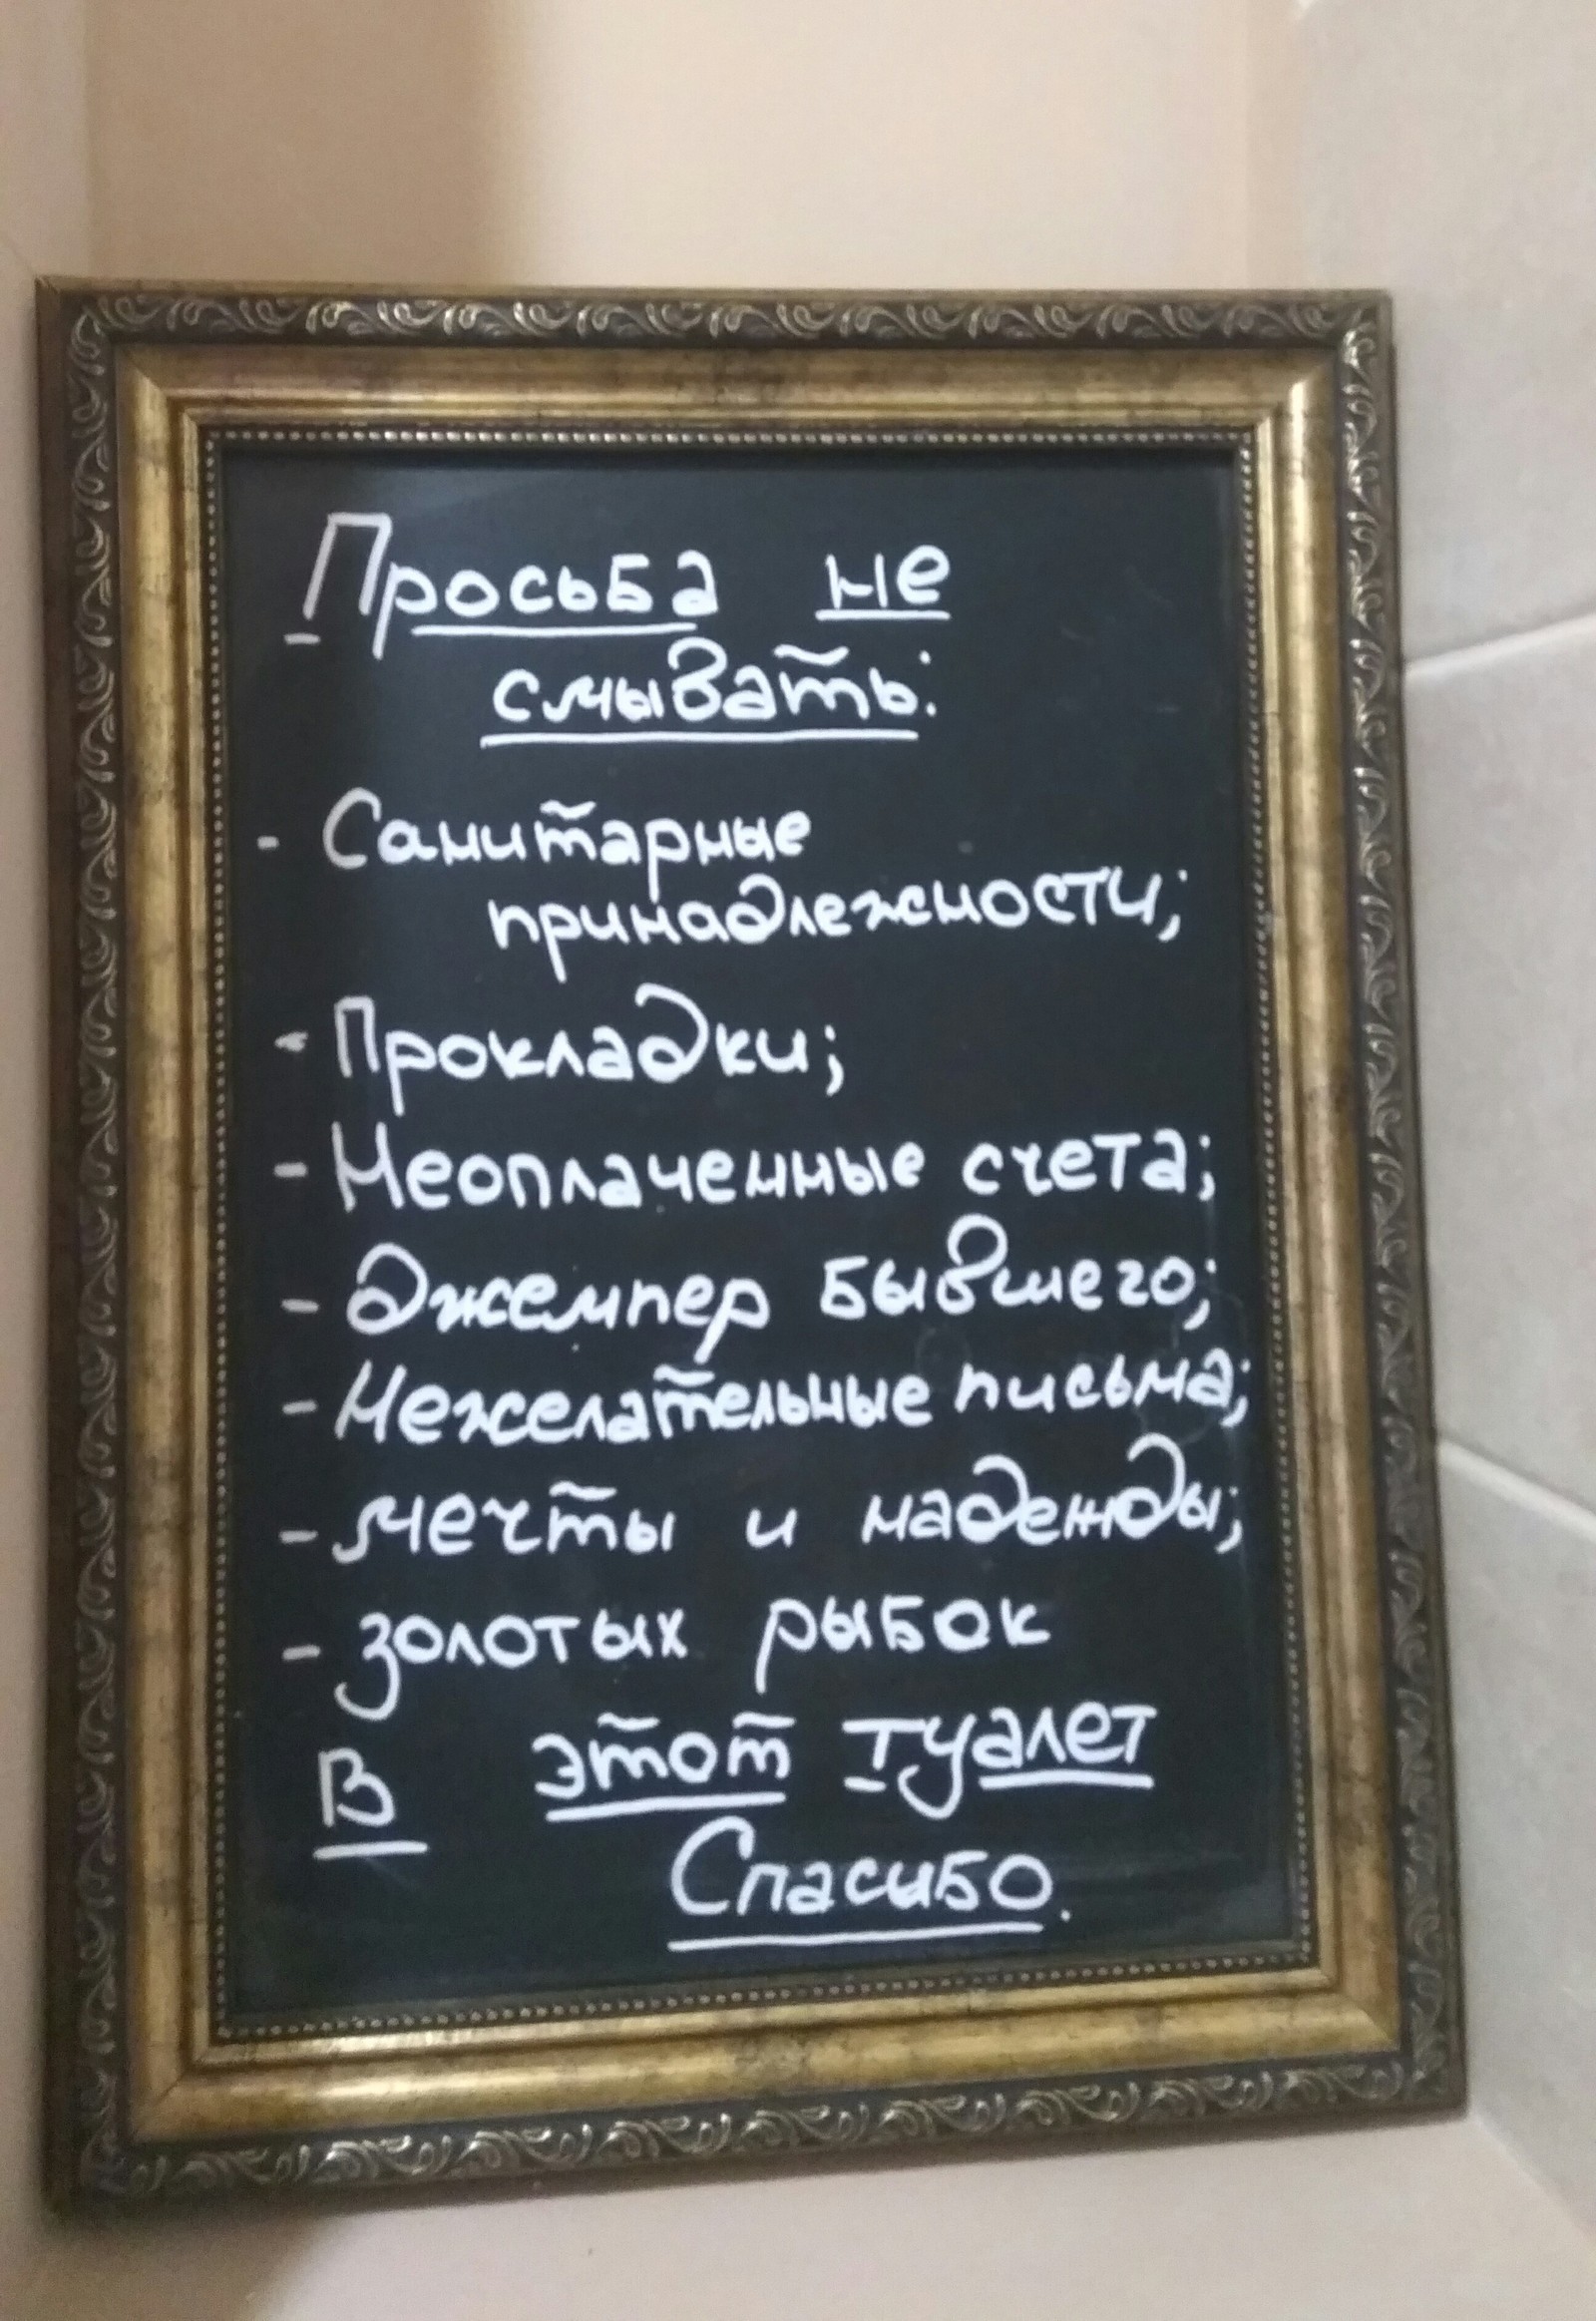 Просьба не
смывать:
- Санитарные
принадлежности;
- Прокладки;
- Неоплаченные счета;
- Джемпер бывшего;
- Нежелательные письма;
- мечты и надежды;
- золотых рыбок
В этот туалет
Спасибо.